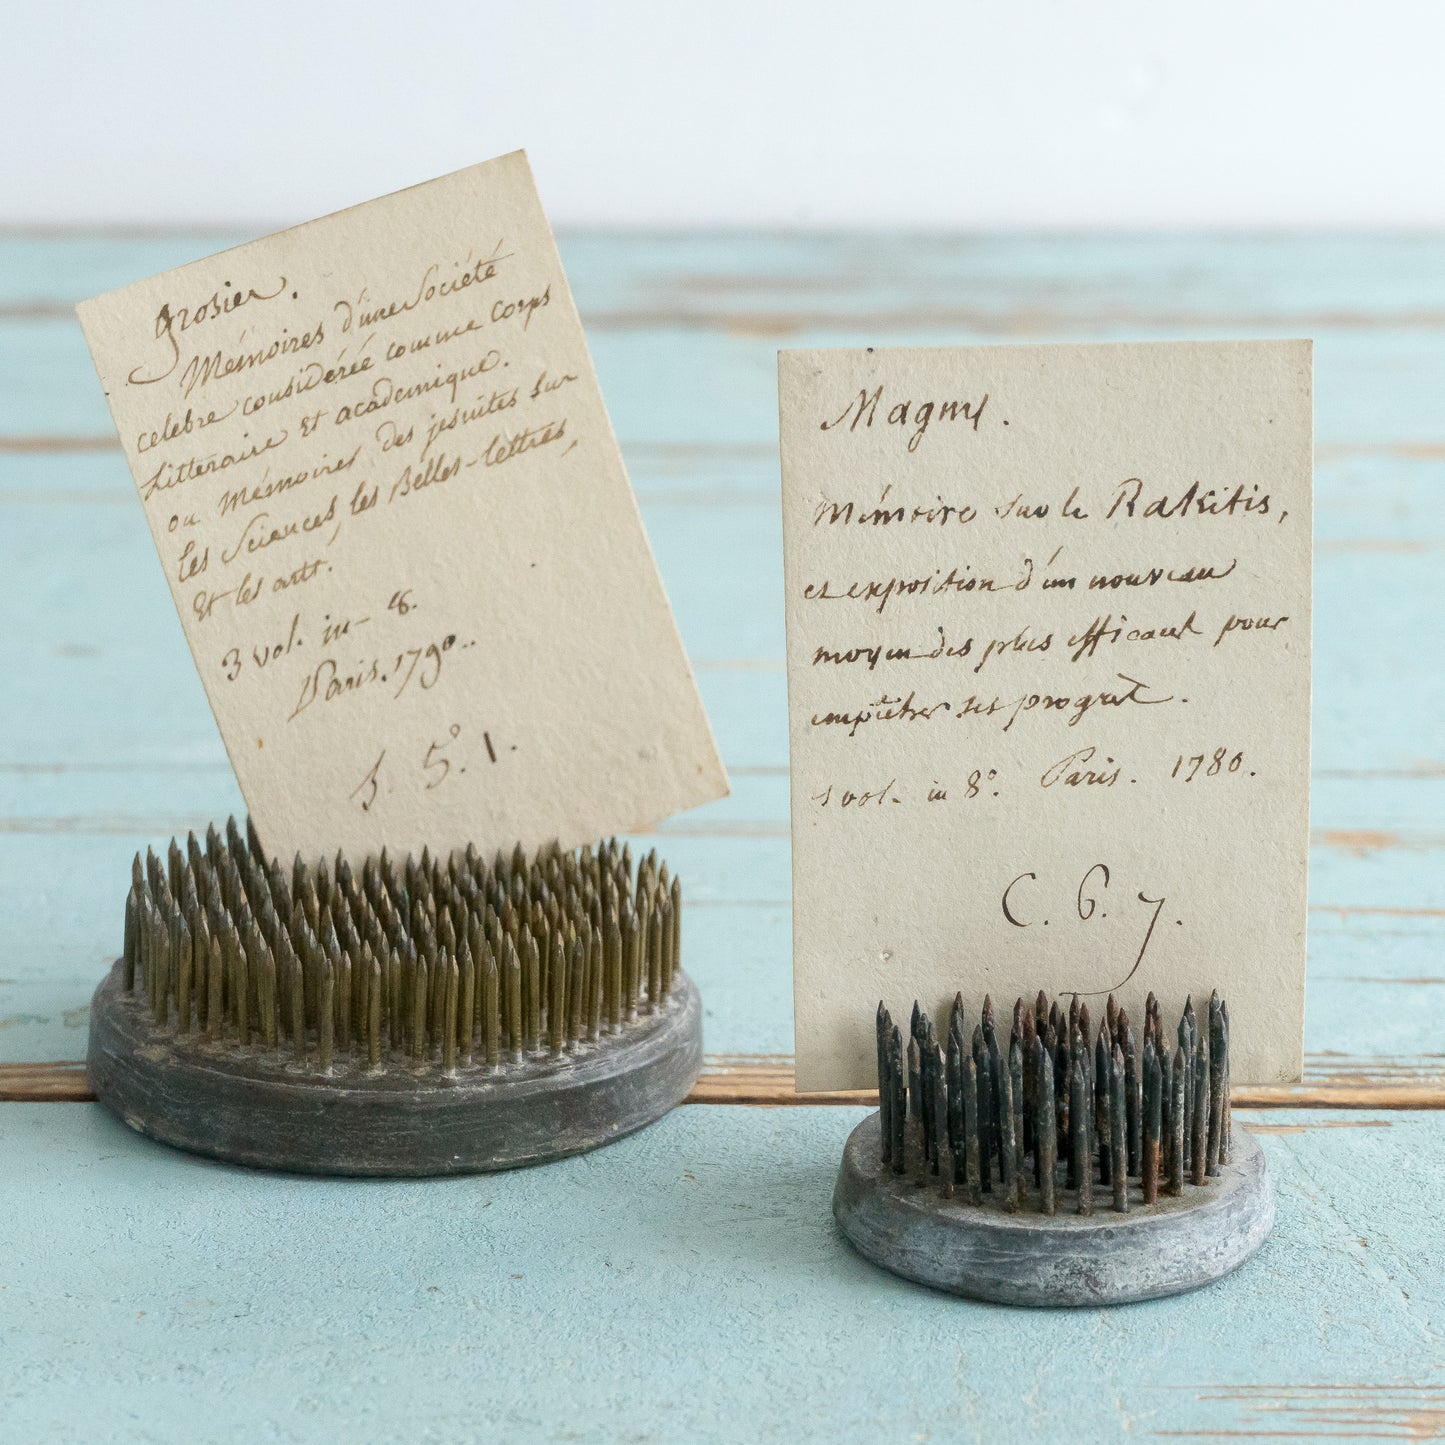 Grosier.
Mémoires d'une Société
celebre considérée comme Corps
Litteraire Et académique.
ou mémoires des jesuites sur
les Sciences, les Belles-lettres,
Et les arts.
3 vol. in- 8.
Paris. 1790..
5°. 1.
Magny.
Mémoire sur le Rakitis,
et exposition d'un nouveau
moyen des plus efficace pour
ses progrès.
1 vol. in 8°. Paris. 1780.
C. 6. 7.